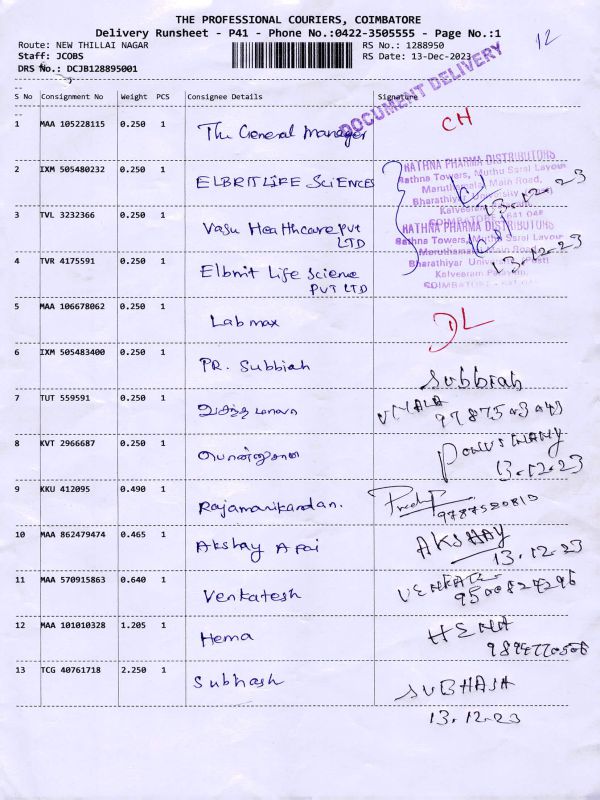 THE PROFESSIONAL COURIERS, COIMBATORE
Delivery Runsheet - P41 - Phone No.:0422-3505555 - Page No.:1
12
Route: NEW THILLAI NAGAR
Staff: JCOBS
DRS No.: DCJB128895001
RS No.: 1288950
RS Date: 13-Dec-2023
DOCUMENT DELIVERY
S No Consignment No Weight PCS Consignee Details Signature
1 MAA 105228115 0.250 1 The General Manager CH
2 IXM 505480232 0.250 1 ELBRIT LIFE SCIENCES
RATHNA PHARMA DISTRIBUTORS
Rathna Towers, Muthu Sarai Layout
Main Road,
Bharathiyar University
13.12.23
3 TVL 3232366 0.250 1 Vasu Healthcare PVT
LTD
RATHNA PHARMA DISTRIBUTORS
Rathna Towers, Muthu Sarai Layout
Maruthamalai Main Road
Bharathiyar University Post
Kalveeram Palayam,
13.12.23
4 TVR 4175591 0.250 1 Elbrit Life Science
PVT LTD
5 MAA 106678062 0.250 1 Lab max DL
6 IXM 505483400 0.250 1 PR. Subbiah Subbiah
7 TUT 559591 0.250 1 UMALA
8 KVT 2966687 0.250 1 PONUSWAMY
13.12.23
9 KKU 412095 0.490 1 Rajamanikandan.
9787520810
10 MAA 862479474 0.465 1 Akshay A Pai AKSHAY
13.12.23
11 MAA 570915863 0.640 1 Venkatesh
9500824296
12 MAA 101010328 1.205 1 Hema HEMA
13 TCG 40761718 2.250 1 Subhash SUBHASH
13.12.23